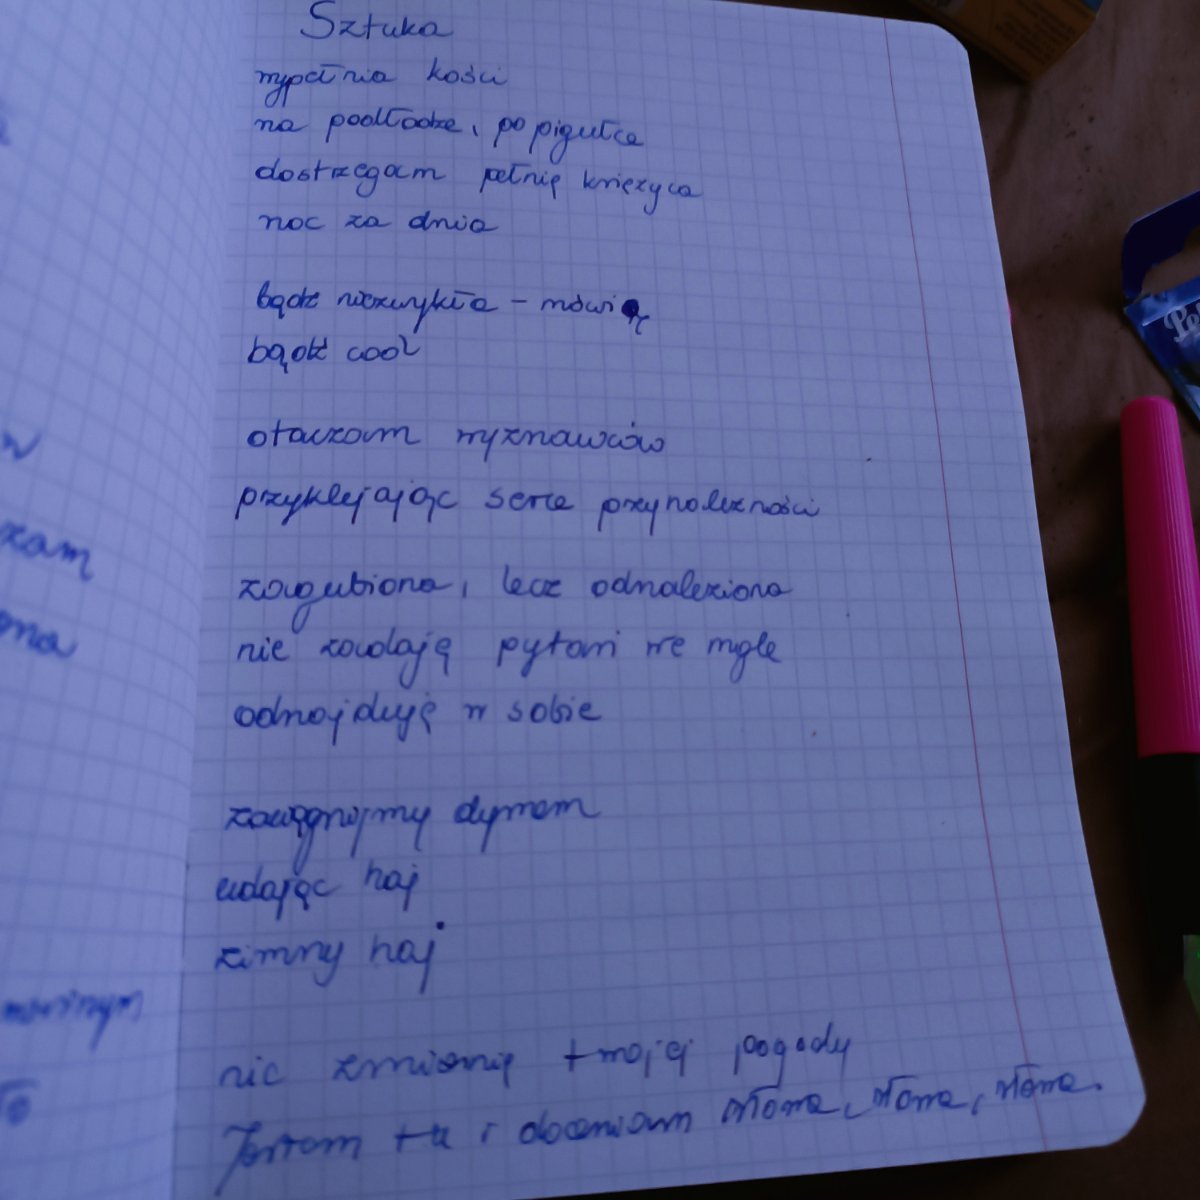 Sztuka
wypełnia kości
na podłodze, po pigułce
dostrzegam pełnię księżyca
noc za dnia
bądź niezwykła – mówię
bądź cool
otaczam wyznawców
przyklejając serce przynależności
zagubiona, lecz odnaleziona
nie zadaję pytań we mgle
odnajduję w sobie
zaciągnijmy dymem
udając haj
zimny haj
nie zmienię twojej pogody
Jestem tu i doceniam słowa, słowa, słowa.
zam